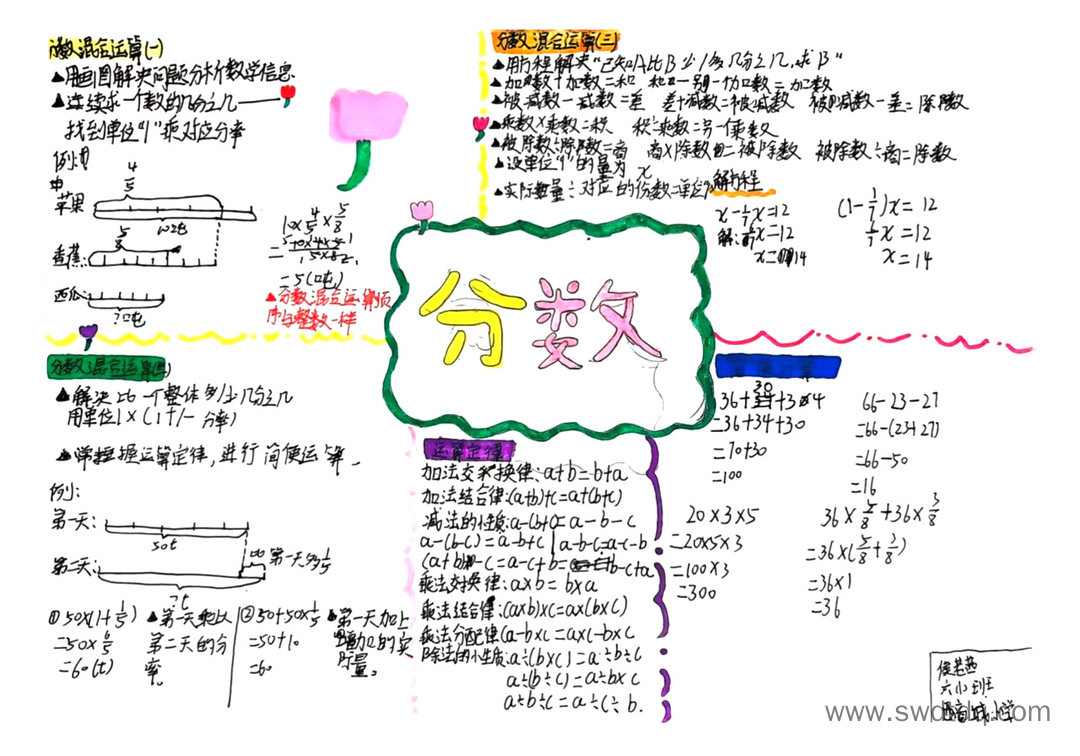 分数混合运算(一)
▲用画图解决问题分析数学信息
▲连续求一个数的几分之几
找到单位"1"乘对应分率
例:
4/5
苹果
10吨
5/8
香蕉:
西瓜:
?吨
10×4/5×5/8
=5(吨)
▲分数混合运算顺
序与整数一样
分数混合运算(三)
▲用方程解决"已知A比B少/多几分之几,求B"
▲加数+加数=和 和-另一个加数=加数
▲被减数-减数=差 差+减数=被减数 被减数-差=除数
▲乘数×乘数=积 积÷乘数=另一乘数
▲被除数÷除数=商 商×除数=被除数 被除数÷商=除数
▲设单位"1"的量为x
▲实际数量÷对应的份数=单位1
解方程
x-1/7x=12
解:6/7x=12
x=14
(1-1/7)x=12
6/7x=12
x=14
分数
分数混合运算(二)
▲解决比一个整体多/少几分之几
用单位1×(1+/-分率)
▲掌握运算定律,进行简便运算.
例:
第一天:
50t
第二天:
比第一天多1/5
?t
①50×(1+1/5)
=50×6/5
=60(t)
▲第一天乘比
第二天的分
率。
②50+50×1/5
=50+10
=60
▲第一天加上
增加的实
际量。
运算定律
加法交换律:a+b=b+a
加法结合律:(a+b)+c=a+(b+c)
减法的性质:a-(b+c)=a-b-c
a-(b-c)=a-b+c a-b-c=a-c-b
(a+b)-c=a-c+b=b-c+a
乘法交换律:a×b=b×a
乘法结合律:(a×b)×c=a×(b×c)
乘法分配律(a-b×c=a×c-b×c
除法的小性质:a÷(b×c)=a÷b÷c
a÷(b÷c)=a÷b×c
a÷b÷c=a÷c÷b.
36+34+30
=36+34+30
=70+30
=100
66-23-27
=66-(23+27)
=66-50
=16
20×3×5
=20×5×3
=100×3
=300
36×5/8+36×3/8
=36×(5/8+3/8)
=36×1
=36
六小班
www.swdsb.com